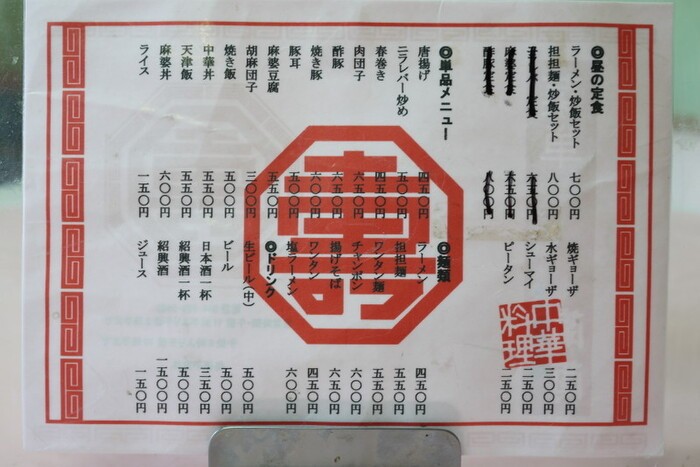 ◎昼の定食
ラーメン・炒飯セット 七〇〇円
担担麺・炒飯セット 八〇〇円
定食
麻婆定食 六五〇円
酢豚定食 八〇〇円
焼ギョーザ 二五〇円
水ギョーザ 三〇〇円
シューマイ 二五〇円
ピータン 二五〇円
中華料理
◎単品メニュー
唐揚げ 四五〇円
ニラレバー炒め 五〇〇円
春巻き 四五〇円
肉団子 六五〇円
酢豚 六五〇円
焼き豚 六〇〇円
豚耳 五〇〇円
麻婆豆腐 五五〇円
胡麻団子 三〇〇円
焼き飯 五〇〇円
中華丼 五五〇円
天津飯 五五〇円
麻婆丼 六〇〇円
ライス 一五〇円
◎麺類
ラーメン 四五〇円
担担麺 五五〇円
ワンタン麺 五五〇円
チャンポン 六〇〇円
揚げそば 六五〇円
ワンタン 四五〇円
塩ラーメン 六〇〇円
◎ドリンク
生ビール(中) 五〇〇円
ビール 五〇〇円
日本酒一杯 三五〇円
紹興酒一杯 五〇〇円
紹興酒 一五〇〇円
ジュース 一五〇円